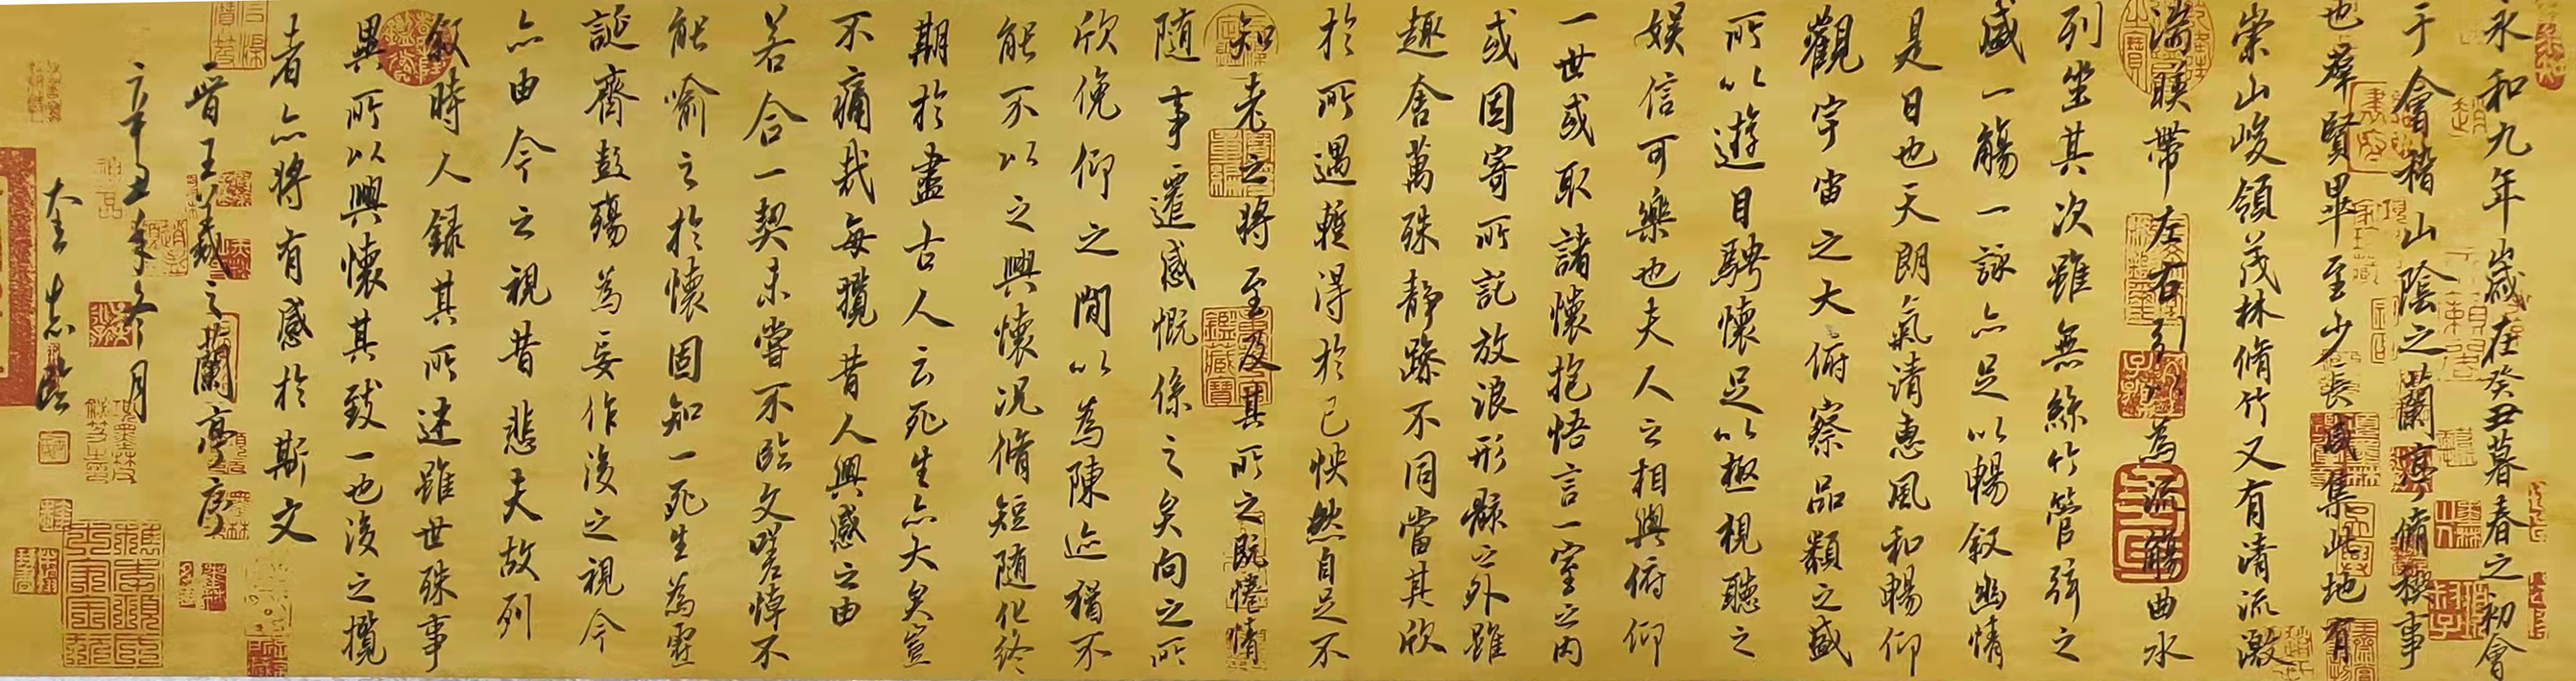 永和九年歲在癸丑暮春之初會
于會稽山陰之蘭亭脩稧事
也群賢畢至少長咸集此地有
崇山峻領茂林脩竹又有清流激
湍暎帶左右引以為流觴曲水
列坐其次雖無絲竹管弦之
盛一觴一詠亦足以暢敘幽情
是日也天朗氣清惠風和暢仰
觀宇宙之大俯察品類之盛
所以遊目騁懷足以極視聽之
娛信可樂也夫人之相與俯仰
一世或取諸懷抱悟言一室之內
或因寄所託放浪形骸之外雖
趣舍萬殊靜躁不同當其欣
於所遇蹔得於己怏然自足不
知老之將至及其所之既惓情
隨事遷感慨係之矣向之所
欣俛仰之閒以為陳迹猶不
能不以之興懷況脩短隨化終
期於盡古人云死生亦大矣豈
不痛哉每攬昔人興感之由
若合一契未嘗不臨文嗟悼不
能喻之於懷固知一死生為虛
誕齊彭殤為妄作後之視今
亦由今之視昔悲夫故列
敘時人錄其所述雖世殊事
異所以興懷其致一也後之攬
者亦將有感於斯文
晉王羲之蘭亭序
辛丑年冬月
志臨